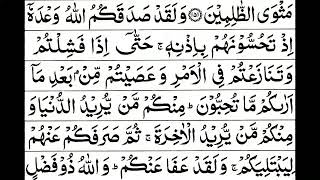 مَثْوَى الظّٰلِمِيْنَ ۝۱۵۱ وَلَقَدْ صَدَقَكُمُ اللّٰهُ وَعْدَهٗۤ
اِذْ تَحُسُّوْنَهُمْ بِاِذْنِهٖ ۚ حَتّٰۤى اِذَا فَشِلْتُمْ
وَتَنَازَعْتُمْ فِى الْاَمْرِ وَعَصَيْتُمْ مِّنْۢ بَعْدِ مَاۤ
اَرٰىكُمْ مَّا تُحِبُّوْنَ ؕ مِنْكُمْ مَّنْ يُّرِيْدُ الدُّنْيَا وَ
مِنْكُمْ مَّنْ يُّرِيْدُ الْاٰخِرَةَ ۚ ثُمَّ صَرَفَكُمْ عَنْهُمْ
لِيَبْتَلِيَكُمْ ۚ وَلَقَدْ عَفَا عَنْكُمْ ؕ وَاللّٰهُ ذُوْ فَضْلٍ